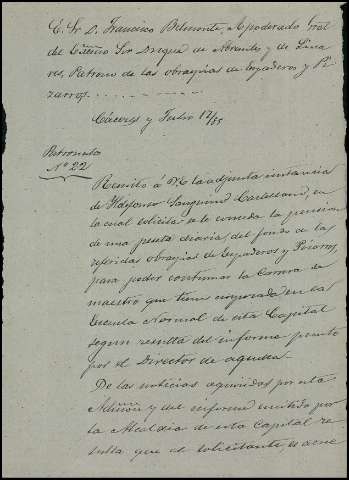 E. Sr. D. Francisco Belmonte, Apoderado Gral
del Excmo Sor Duque de Abrantes y de Lina
res, Patrono de las obras pias de Enzaderos y Pi
zarros.
Cáceres y Julio 12/85
Patronato
Nº 22
Remito á V.E. la adjunta instancia
de Ildefonso Sanguino Castellano, en
la cual solicita se le conceda la pension
de una peseta diaria, del fondo de las
referidas obras pias de Enzaderos y Pizarros,
para poder continuar la Carrera de
maestro que tiene empezada en la
Escuela Normal de esta Capital
segun resulta del informe puesto
por el Director de aquella.
De las noticias adquiridas por esta
Admon y del informe emitido por
la Alcaldia de esta Capital re
sulta que el solicitante, es acre